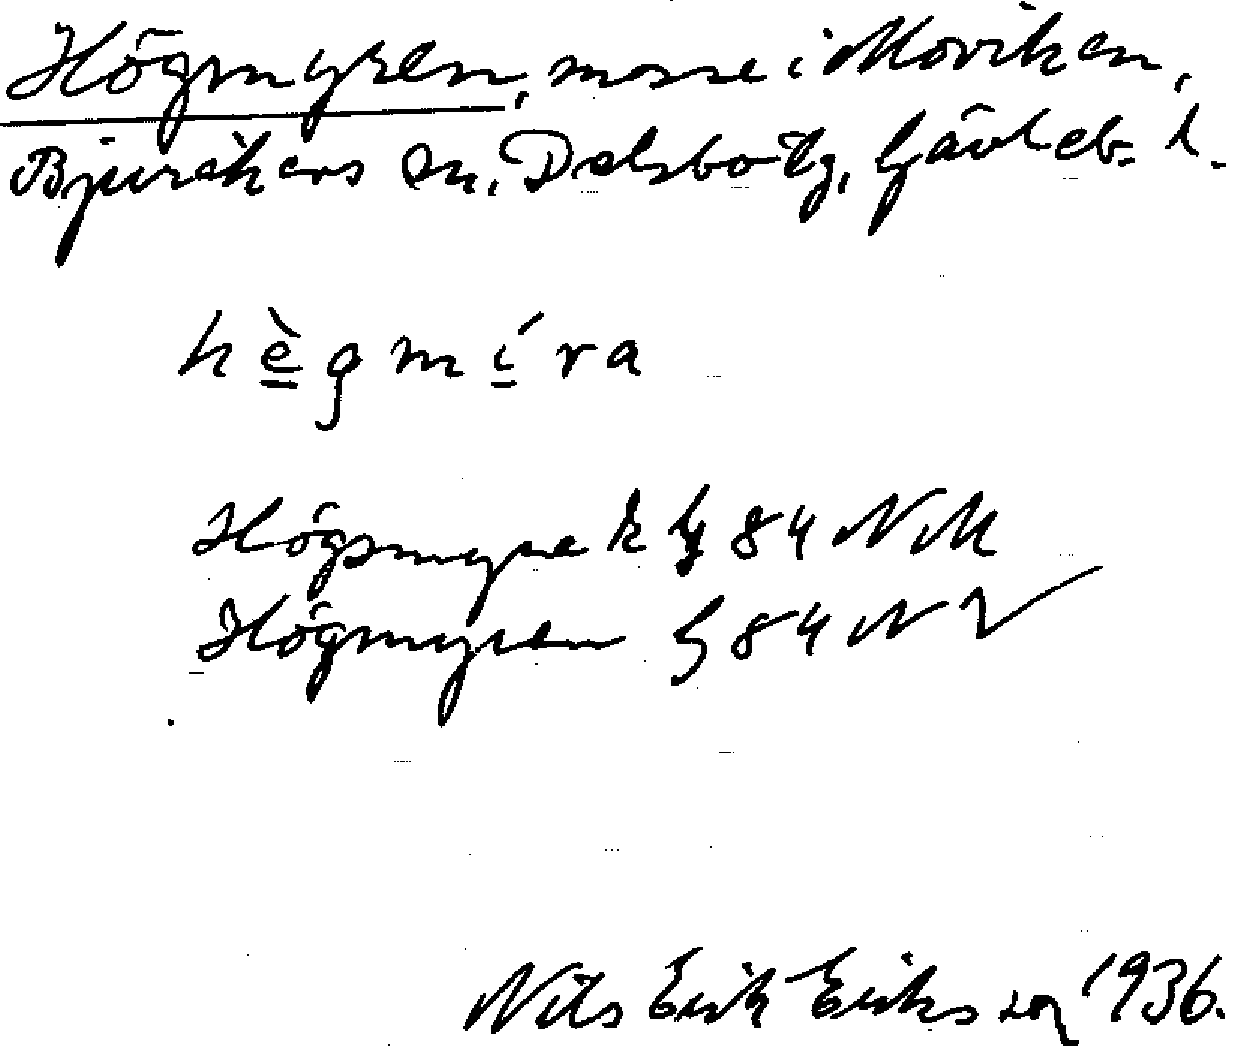 Högmyren, mosse i Moviken,
Bjuråkers sn, Delsbo tg, Gävleb. l.
hègmíra
Högmyre k 84 NM
Högmyren 84 NV
Nils Erik Eriksson 1936.